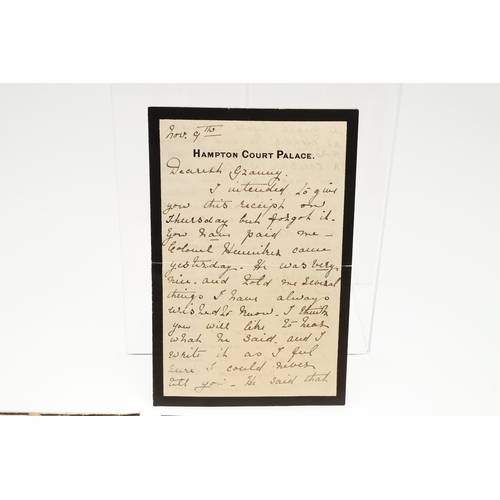 Nov. 9TH
HAMPTON COURT PALACE.
Dearest Granny.
I intended to give
you this receipt on
Thursday but forgot it.
You have paid me –
Colonel Henniker came
yesterday – He was very
nice and told me several
things I have always
wished to know. I think
you will like to hear
what he said, and I
write it as I feel
sure I could never
tell you – He said that